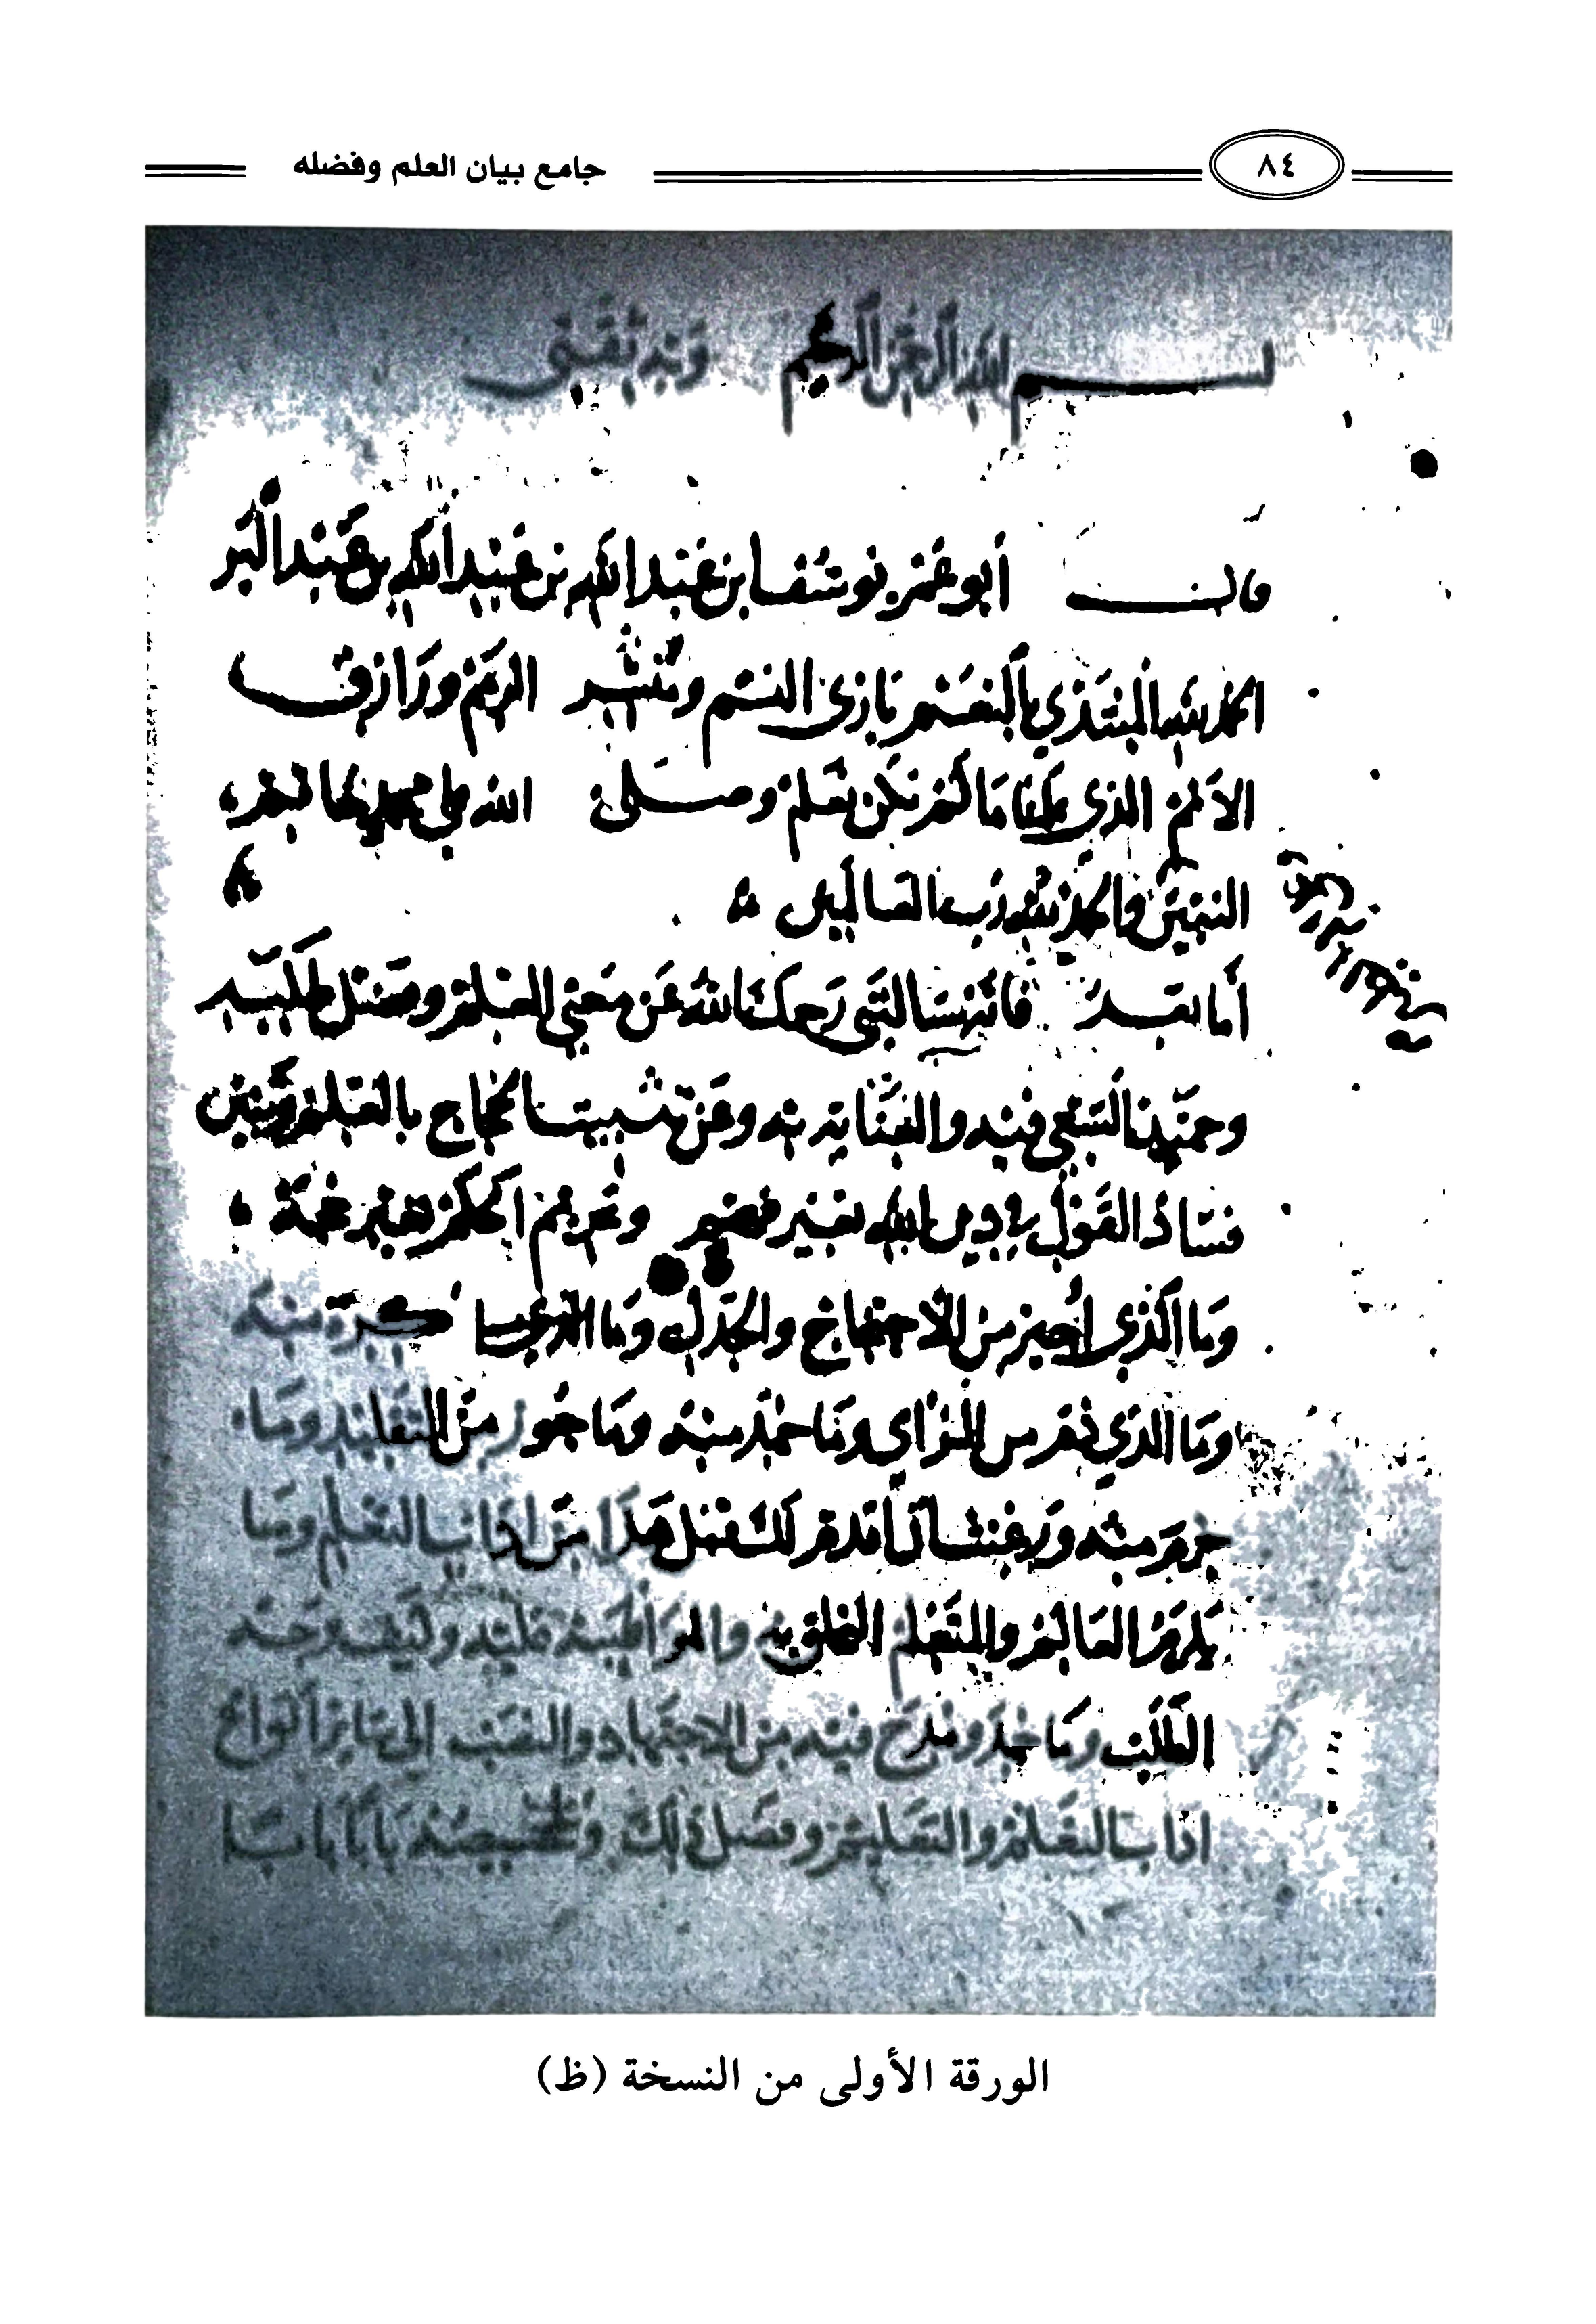 جامع بيان العلم وفضله
٨٤
بسم الله الرحمن الرحيم وبه ثقتي
قال أبو عمر يوسف ابن عبد الله بن عبد الله بن عبد البر
الحمد لله المبتدي بالنعم باري النسم ومنشر الرمم ورازق
الامم الذي علمنا ما لم نكن نعلم وصلى الله على محمد خاتم
النبيين والحمد لله رب العالمين
أما بعد فانك سالتني رحمك الله عن معنى العلم وفضل طلبه
وحمد السعي فيه والعناية به وعن تثبيت الحجاج بالعلم وتبيين
فساد القول في دين الله بغير فهم وتحريم الحكم بغير حجة
وما الذي أجيز من الاحتجاج والجدل وما الذي كره منه
وما الذي ذم من الرأي وما حمد منه وما جوز من التقليد وما
حرم منه ورغبت ان أقدم لك قبل هذا من اداب التعلم وما
يلزم العالم والمتعلم التخلق به والمواظبة عليه وكيف وجه
الطلب وما حمد ومدح فيه من الاجتهاد والنصب الى سائر أنواع
اداب التعلم والتعليم وفضل ذلك وتلخيصه بابا بابا
الورقة الأولى من النسخة (ظ)